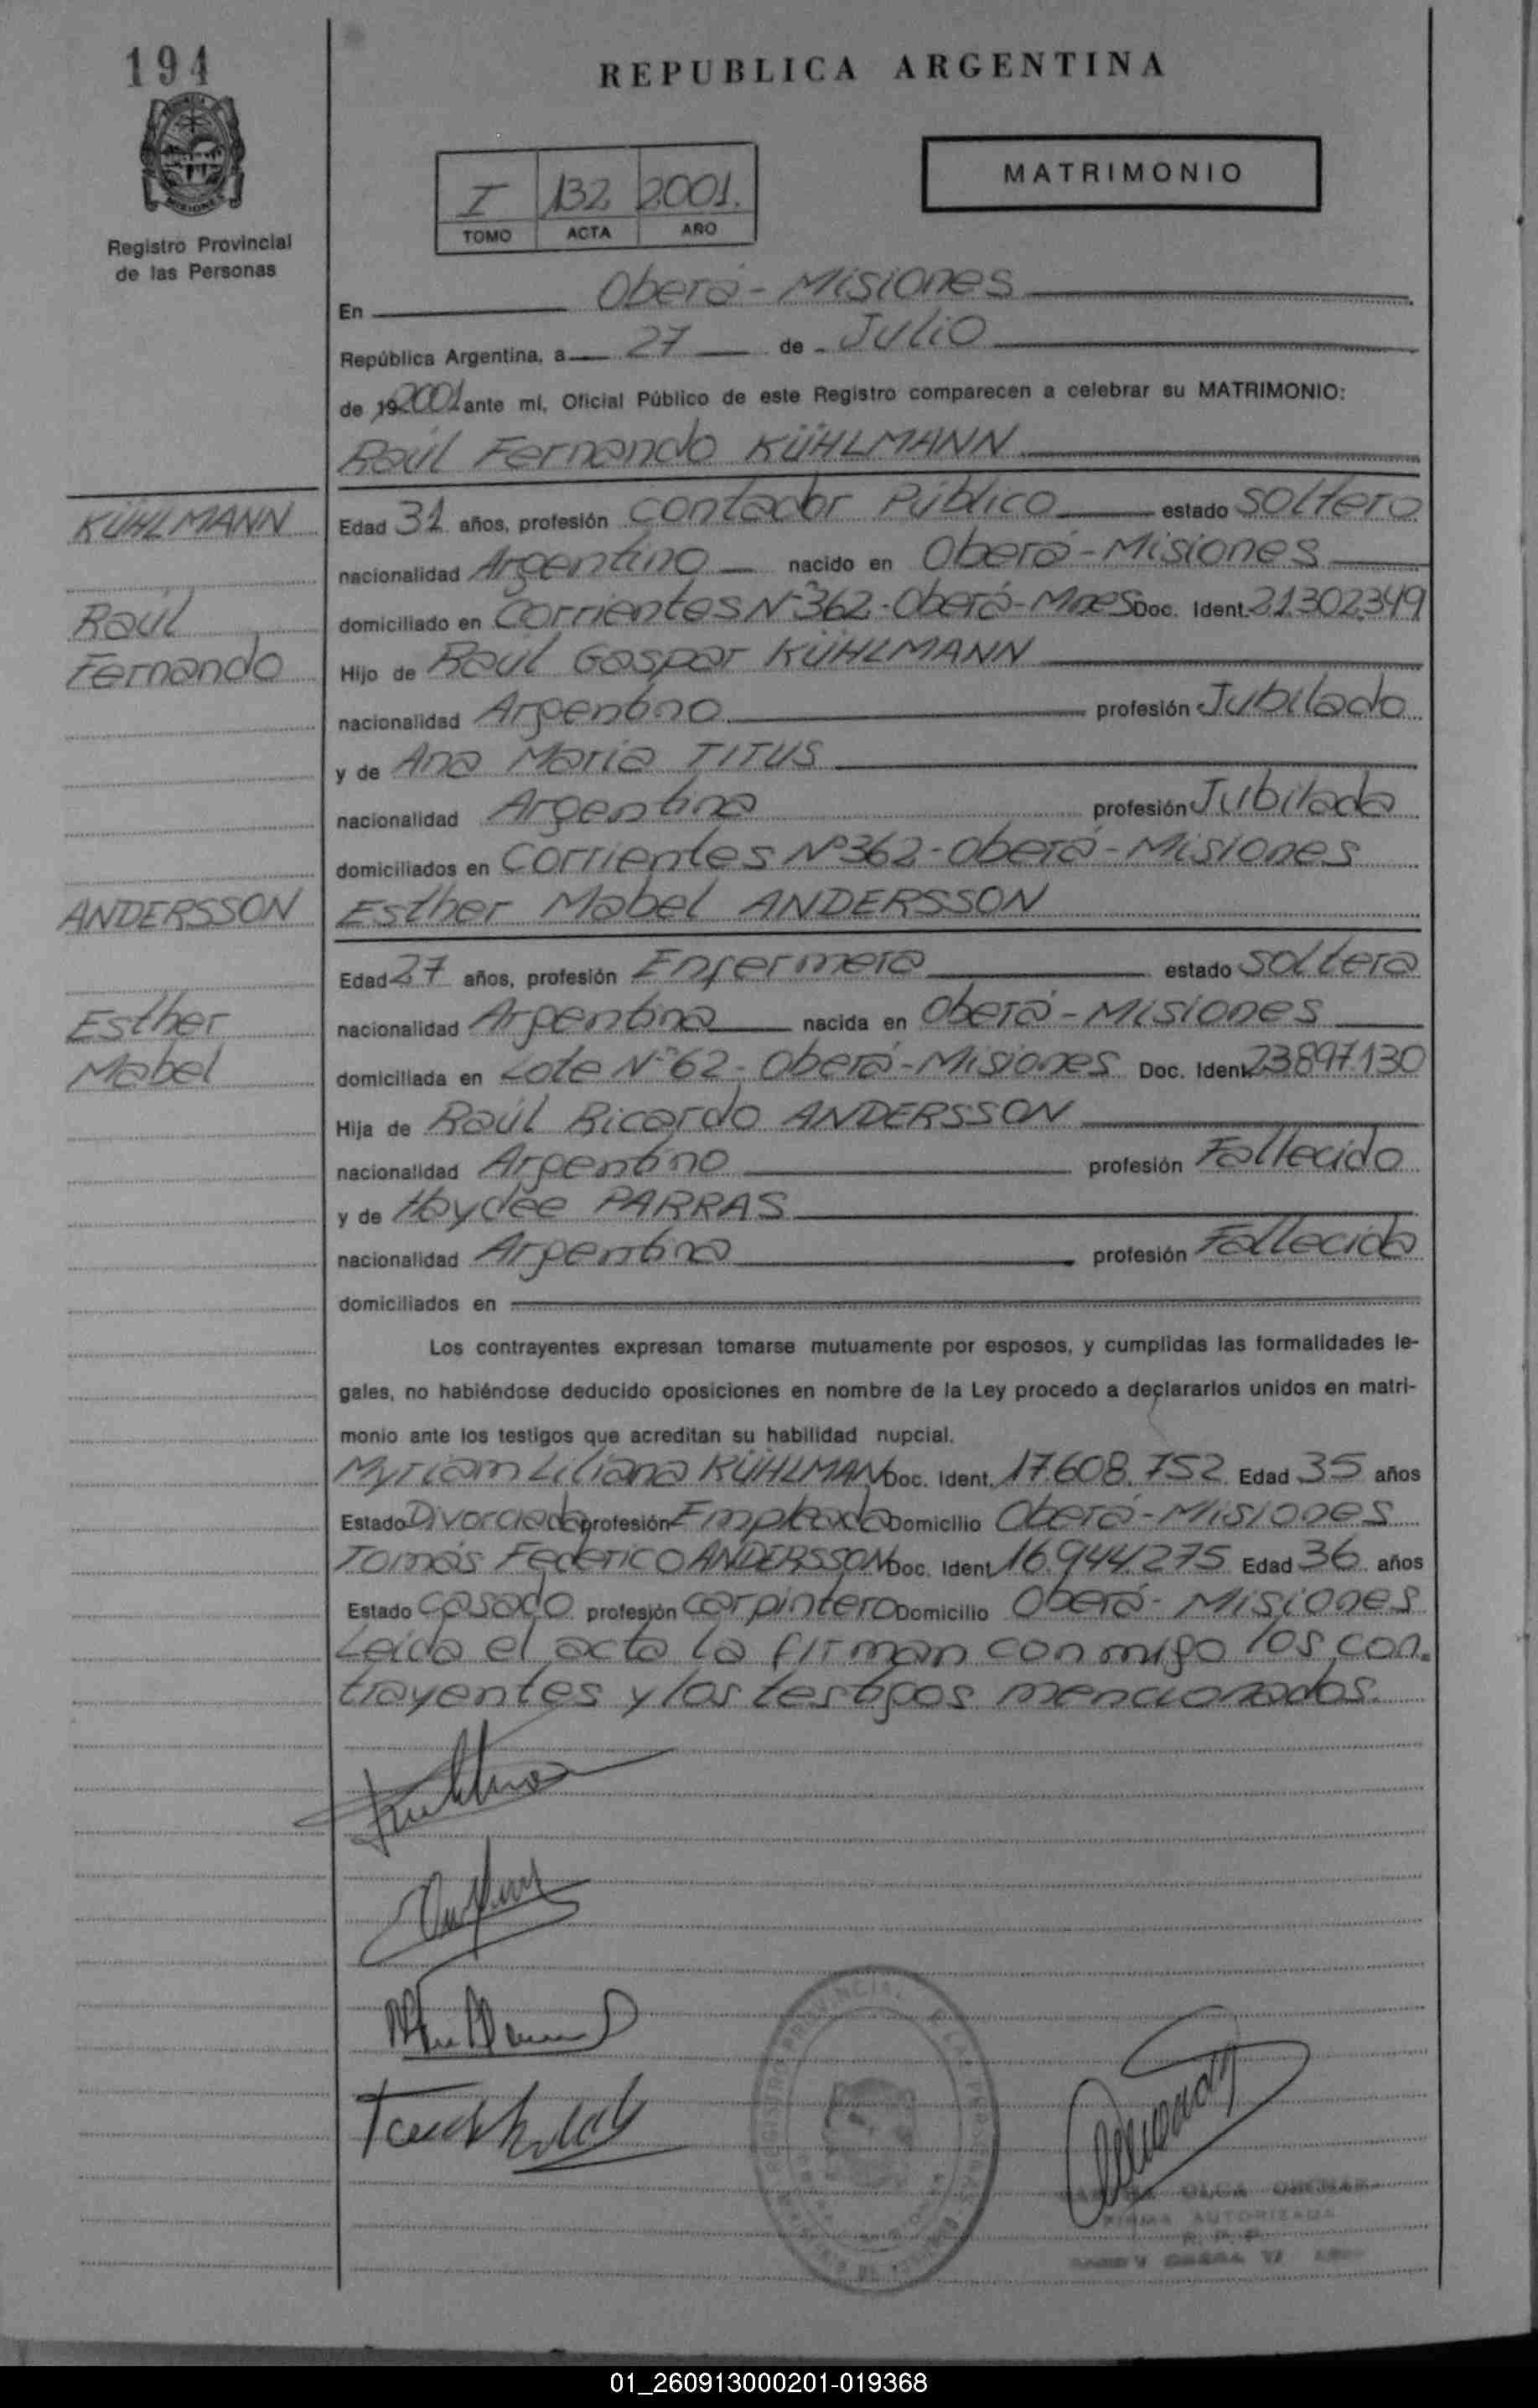 194
REPUBLICA ARGENTINA
MISIONES
Registro Provincial
de las Personas
MATRIMONIO
I 132 2001.
TOMO ACTA AÑO
En Oberá - Misiones
República Argentina, a 27 de Julio
de 192001 ante mí, Oficial Público de este Registro comparecen a celebrar su MATRIMONIO:
Raúl Fernando KÜHLMANN
KÜHLMANN
Edad 31 años, profesión contador Público estado soltero
nacionalidad Argentino nacido en Oberá - Misiones
Raúl
domiciliado en Corrientes Nº 362 - Oberá - Mnes Doc. Ident. 21.302.349
Fernando
Hijo de Raúl Gaspar KÜHLMANN
nacionalidad Argentino profesión Jubilado
y de Ana María TITUS
nacionalidad Argentina profesión Jubilada
domiciliados en Corrientes Nº 362 - Oberá - Misiones
ANDERSSON
Esther Mabel ANDERSSON
Edad 27 años, profesión Enfermera estado soltera
Esther
nacionalidad Argentina nacida en Oberá - Misiones
Mabel
domiciliada en Lote Nº 62 - Oberá - Misiones Doc. Ident. 23.897.130
Hija de Raúl Ricardo ANDERSSON
nacionalidad Argentino profesión Fallecido
y de Haydée PARRAS
nacionalidad Argentina profesión Fallecida
domiciliados en
Los contrayentes expresan tomarse mutuamente por esposos, y cumplidas las formalidades le-
gales, no habiéndose deducido oposiciones en nombre de la Ley procedo a declararlos unidos en matri-
monio ante los testigos que acreditan su habilidad nupcial.
Myriam Liliana KÜHLMANN Doc. Ident. 17.608.752 Edad 35 años
Estado Divorciada profesión Empleada Domicilio Oberá - Misiones
Tomás Federico ANDERSSON Doc. Ident. 16.944.275 Edad 36 años
Estado casado profesión carpintero Domicilio Oberá - Misiones
Leída el acta la firman conmigo los con-
trayentes y los testigos mencionados.
REGISTRO PROVINCIAL DE LAS PERSONAS
OLGA
FIRMA AUTORIZADA
R. P. P.
01_260913000201-019368